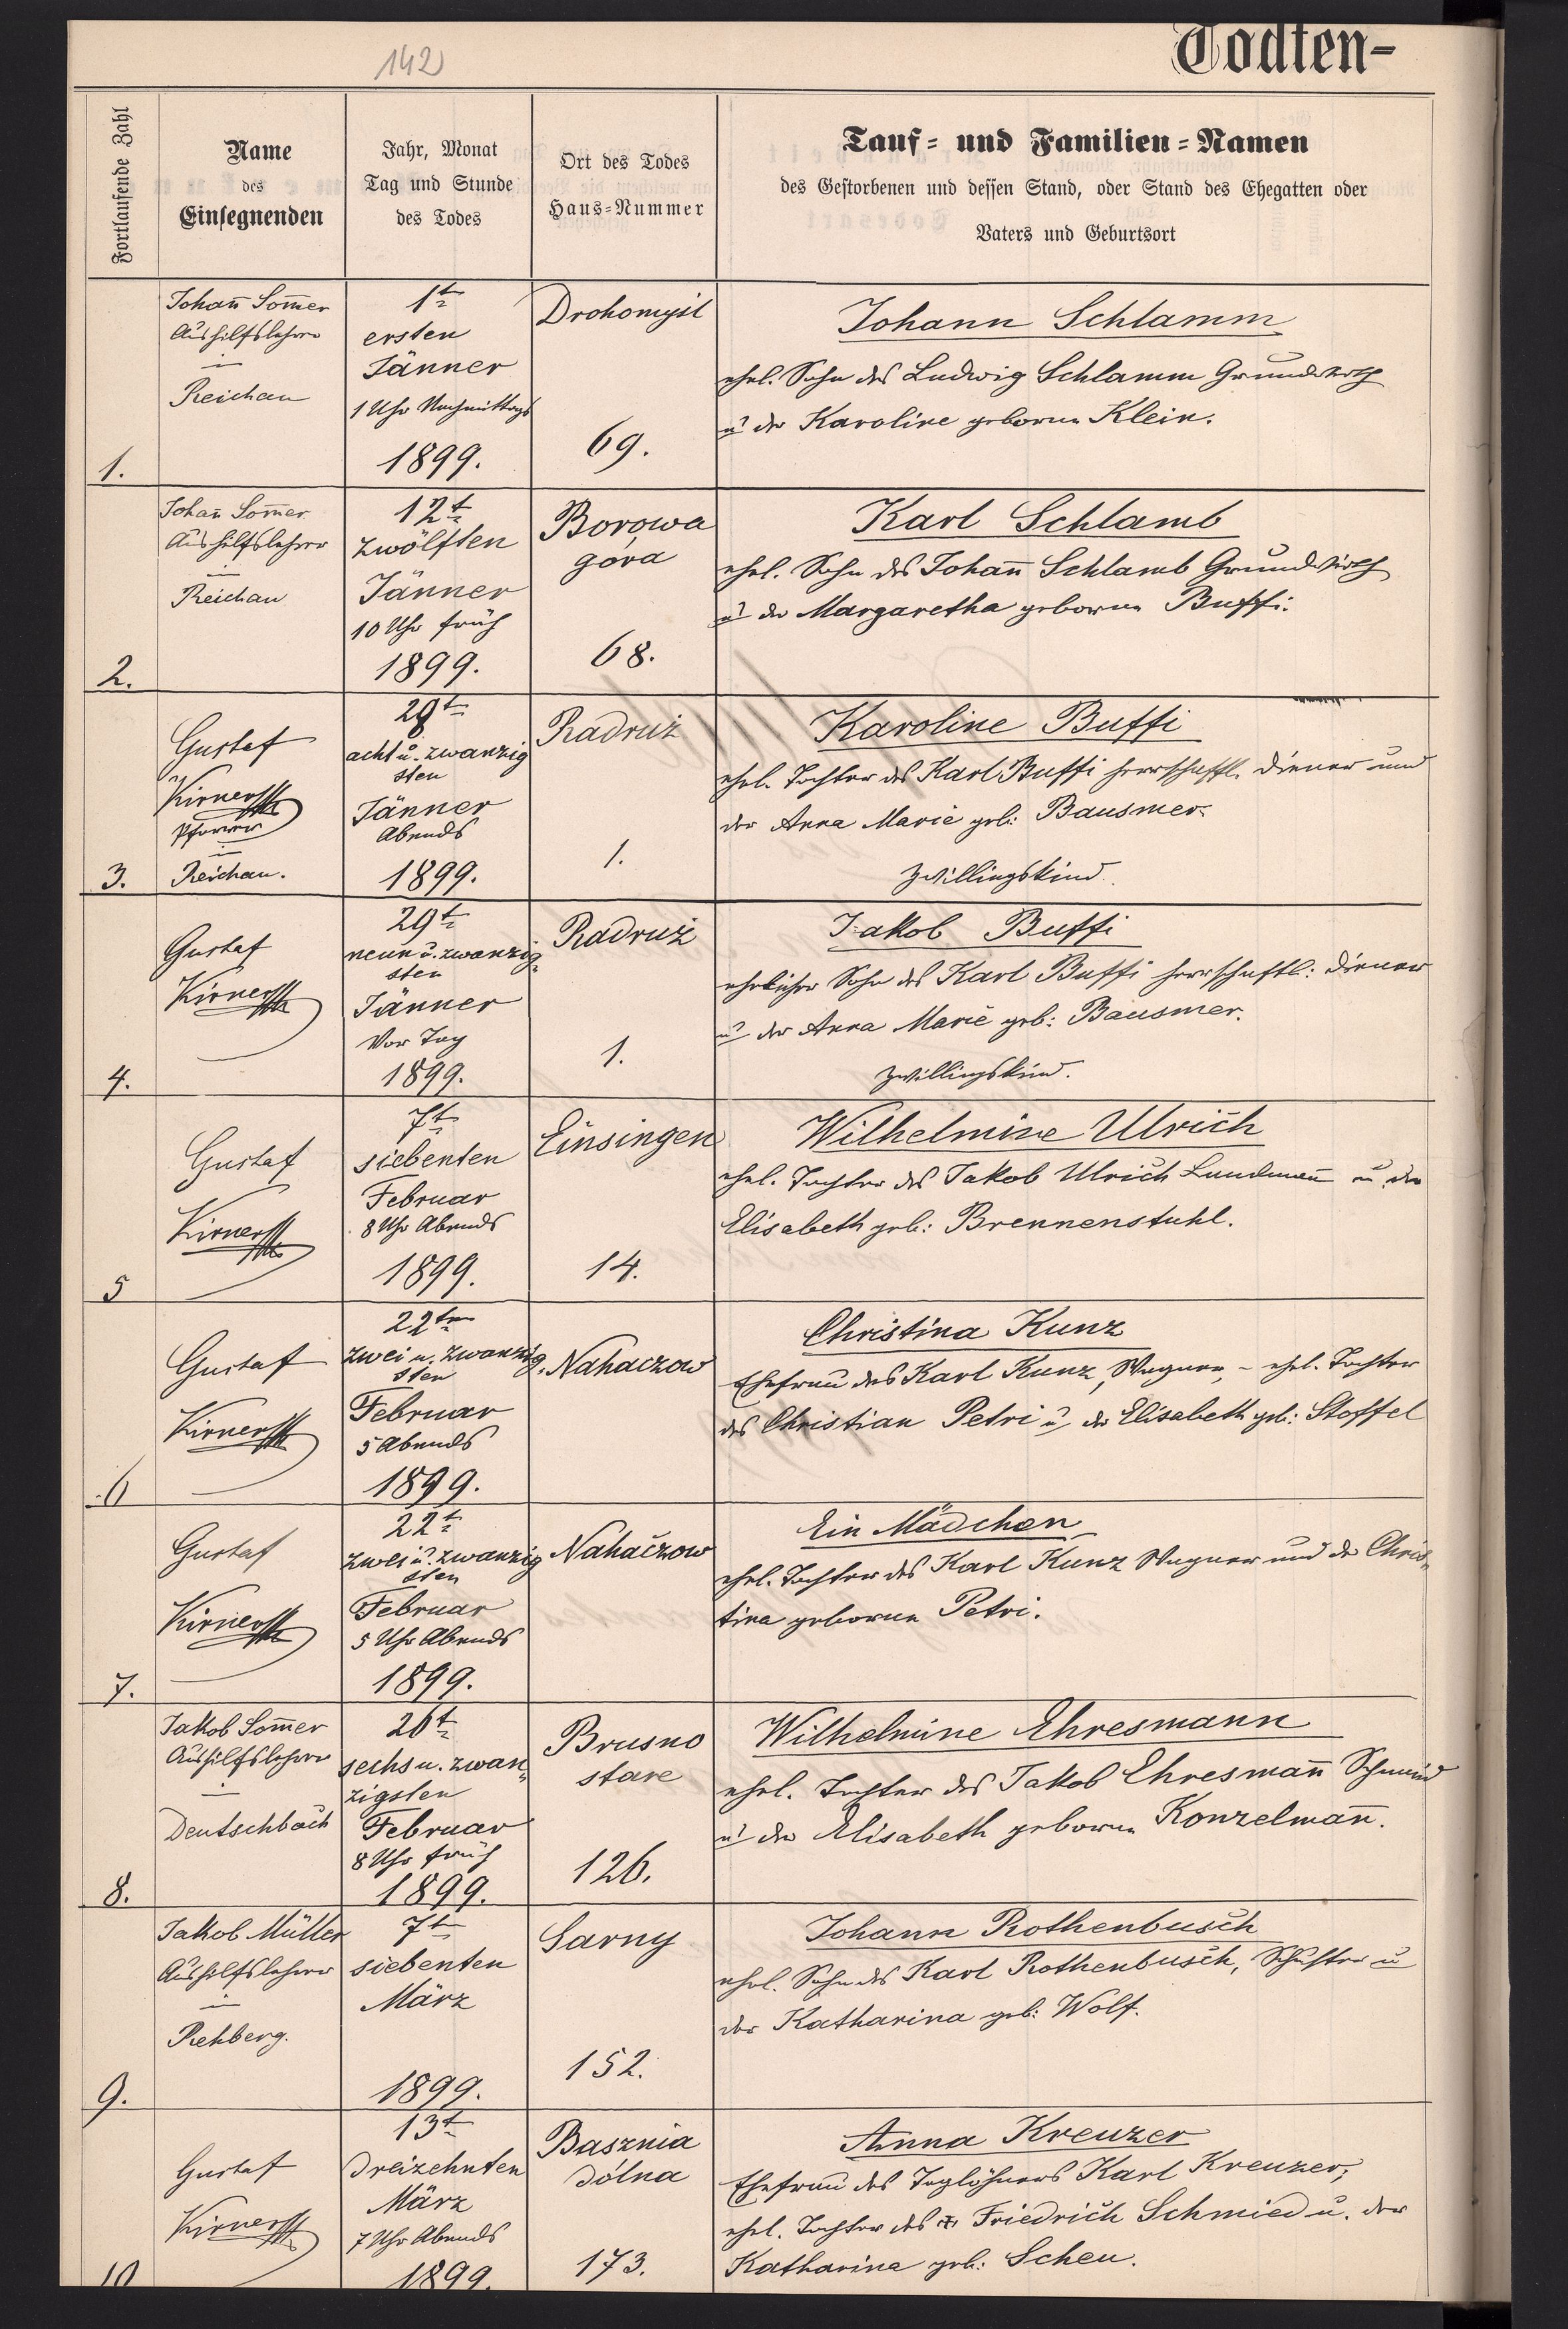 142
Todten-
Fortlaufende Zahl
Name
des
Einsegnenden
Jahr, Monat
Tag und Stunde
des Todes
Ort des Todes
Haus-Nummer
Tauf- und Familien-Namen
des Gestorbenen und dessen Stand, oder Stand des Ehegatten oder
Vaters und Geburtsort
1.
Johan̄ Som̄er
Aushilfslehrer
in
Reichau
1t
ersten
Jänner
1 Uhr Nachmittags
1899.
Drohomyśl
69.
Johann Schlamm
ehel. Sohn des Ludwig Schlamm Grundwirth
u. der Karoline geborne Klein.
2.
Johan̄ Som̄er
Aushilfslehrer
in
Reichau
12t
zwölften
Jänner
10 Uhr früh
1899.
Borowa
góra
68.
Karl Schlamb
ehel. Sohn des Johan̄ Schlamb Grundwirth
u. der Margaretha geborne Buffi.
3.
Gustaf
Kirner
Pfarrer
in
Reichau.
28t
acht u. zwanzig
sten
Jänner
Abends
1899.
Radruż
1.
Karoline Buffi
ehel. Tochter des Karl Buffi herrschaftl. Diener und
der Anna Marie geb: Bausmer.
Zwillingskind.
4.
Gustaf
Kirner
29t
neun u. zwanzig
sten
Jänner
Vor Tag
1899.
Radruż
1.
Jakob Buffi
ehelicher Sohn des Karl Buffi herrschaftl: Diener
u. der Anna Marie geb: Bausmer.
Zwillingskind.
5
Gustaf
Kirner
7t
siebenten
Februar
8 Uhr Abends
1899.
Einsingen
14.
Wilhelmine Ulrich
ehel. Tochter des Jakob Ulrich Landman̄ u. der
Elisabeth geb: Brennenstuhl.
6
Gustaf
Kirner
22ten
zwei u. zwanzig
sten
Februar
5 Abends
1899.
Nahaczow
Christina Kunz
Ehefrau des Karl Kunz, Wagner, – ehel. Tochter
des Christian Petri u. der Elisabeth geb: Stoffel
7.
Gustaf
Kirner
22t
zwei u. zwanzig
sten
Februar
5 Uhr Abends
1899.
Nahaczow
Ein Mädchen
ehel. Tochter des Karl Kunz Wagner und der Chris-
tina geborne Petri.
8.
Jakob Som̄er
Aushilfslehrer
in
Deutschbach
26t
sechs u. zwan-
zigsten
Februar
8 Uhr früh
1899.
Brusno
stare
126.
Wilhelmine Ehresmann
ehel. Tochter des Jakob Ehresman̄ Schmied
u. der Elisabeth geborne Konzelman̄.
9.
Jakob Müller
Aushilfslehrer
in
Rehberg.
7t
siebenten
März
1899.
Sarny
152.
Johann Rothenbusch
ehel. Sohn des Karl Rothenbusch, Schuster u
der Katharina geb: Wolf.
10
Gustaf
Kirner
13t
Dreizehnten
März
7 Uhr Abends
1899.
Basznia
dólna
173.
Anna Kreuzer
Ehefrau des Taglöhners Karl Kreuzer,
ehel. Tochter des Friedrich Schmied u. der
Katharina geb: Scheu.